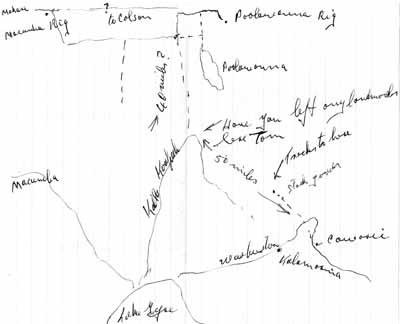 Mokari
Macumba Rig
to Colson
?
Poolowanna Rig
Poolowanna
40 miles?
Have you left any landmarks
Less Tom
50 miles
tracks to bore
Macumba
Warburton
Cowarie
Kalamurina
Lake Eyre